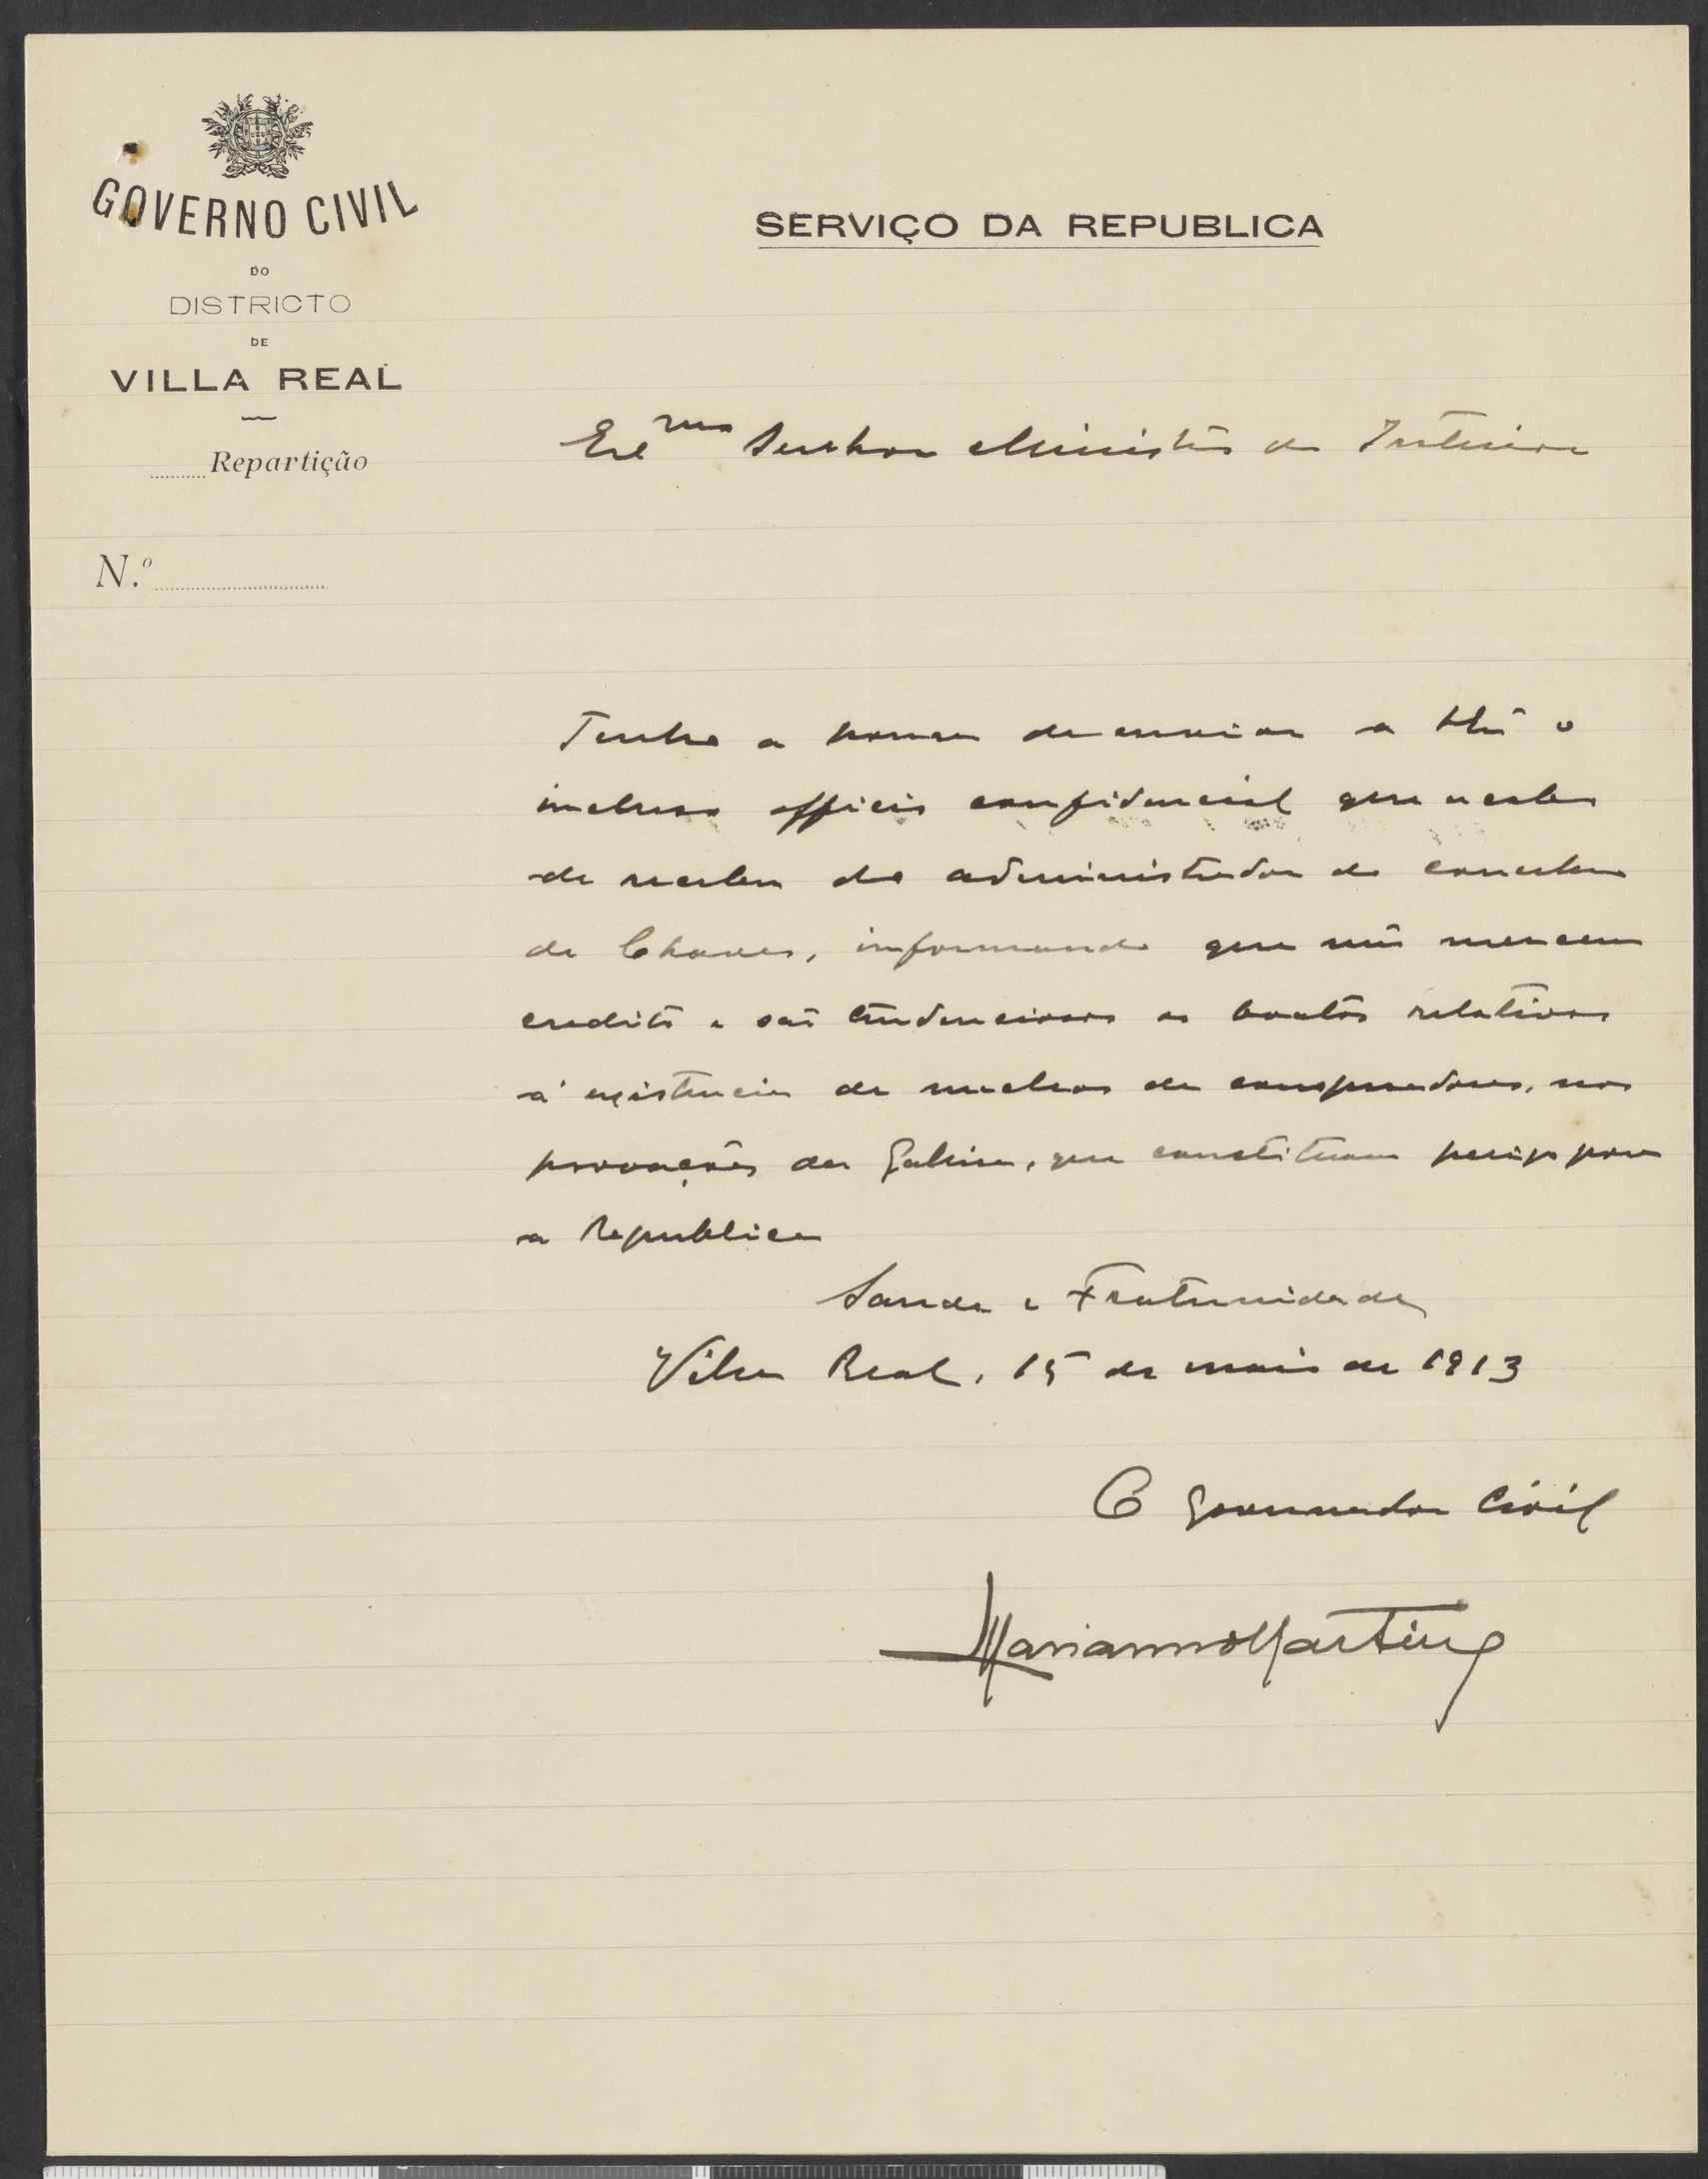 GOVERNO CIVIL
DO
DISTRICTO
DE
VILLA REAL
Repartição
N.º
SERVIÇO DA REPUBLICA
Exmo Senhor Ministro do Interior
Tenho a honra de enviar a V. Ex.ª o
incluso officio confidencial que acabo
de receber do administrador do concelho
de Chaves, informando que não merecem
credito e são tendenciosos os boatos relativos
á existencia de nucleos de conspiradores, nas
povoações da Galiza, que constituam perigo para
a Republica
Saude e Fraternidade
Vila Real, 15 de maio de 1913
O Governador Civil
Marianno Martins